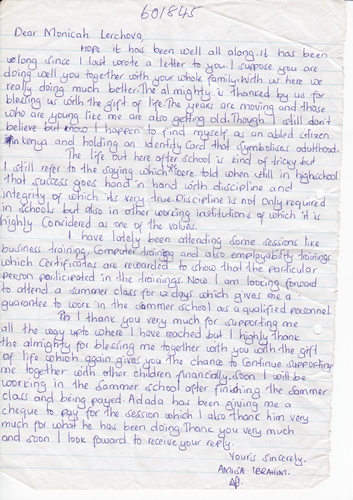 601845
Dear Monicah Lerchova,
Hope it has been well all along. It has been
so long since I last wrote a letter to you. I suppose you are
doing well you together with your whole family. With us here we
really doing much better. The almighty is thanked by us for
blessing us with the gift of life. The years are moving and those
who are young like me are also getting old. Though I still don't
believe but know I happen to find myself as an abled citizen
in kenya and holding an identity card that symbolises adulthood.
The life out here after school is kind of tricky but
I still refer to the saying which were told when still in highschool
that success goes hand in hand with discipline and
integrity of which its very true. Discipline is not only required
in schools but also in other working institutions of which it is
highly considered as one of the values.
I have lately been attending some sessions like
business training, computer training and also employability trainings
which certificates are rewarded to show that the particular
person participated in the trainings. Now I am looking forward
to attend a sammer class for 12 days which gives me a
guarantee to work in the sammer school as a qualified personnel.
I thank you very much for supporting me
all the way upto where I have reached but I highly thank
the almighty for blessing me together with you with the gift
of life which again gives you the chance to continue supporting
me together with other children financially. Soon I will be
working in the sammer school after finishing the sammer
class and being payed. Adada has been giving me a
cheque to pay for the session which I also thank him very
much for what he has been doing. Thank you very much
and soon I look foward to receive your reply.
Yours sincerely.
AMINA IBRAHIM.